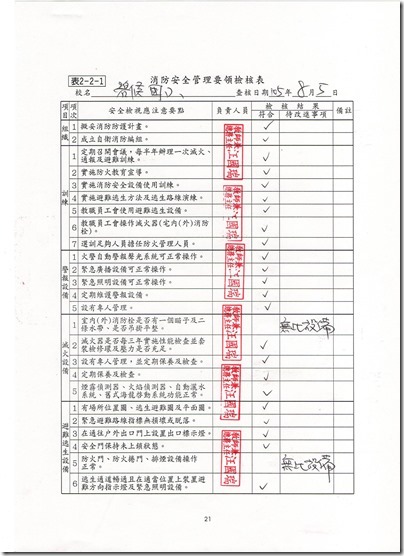 表2-2-1 消防安全管理要領檢核表
校名 國小 查核日期:105年8月5日
項目 項次 安全檢視應注意要點 負責人員 檢核結果 備註
符合 待改進事項
組織 1 擬妥消防防護計畫。 ✓
2 成立自衛消防編組。 ✓
訓練 1 定期召開會議,每半年辦理一次滅火、通報及避難訓練。 ✓
2 實施防火教育宣導。 ✓
3 實施消防安全設備使用訓練。 ✓
4 實施避難逃生方法及逃生路線演練。 ✓
5 教職員工會使用避難逃生設備。 ✓
6 教職員工會操作滅火器(室內(外)消防栓)。 ✓
7 遴訓足夠人員擔任防火管理人員。 ✓
警報設備 1 火警自動警報聲光系統可正常操作。 ✓
2 緊急廣播設備可正常操作。 ✓
3 緊急照明設備可正常操作。 ✓
4 定期維護警報設備。 ✓
5 設有專人管理。 ✓
滅火設備 1 室內(外)消防栓是否有一個瞄子及二條水帶、是否吊掛平整。 無此設備
2 滅火器是否每三年實施性能檢查並套裝檢修環及壓力是否充足。 ✓
3 設有專人管理,並定期保養及檢查。 ✓
4 定期保養及檢查。 ✓
5 煙霧偵測器、火焰偵測器、自動灑水系統、舊式海龍移動系統功能正常。 ✓
避難逃生設備 1 有場所位置圖、逃生避難圖及平面圖。 ✓
2 緊急避難路線指標無損壞或脫落。 ✓
3 在通往戶外出口門上設置出口標示燈。 ✓
4 安全門保持未上鎖狀態。 ✓
5 防火門、防火捲門、排煙設備操作正常。 無此設備
6 逃生通道暢通且在適當位置上裝置避難方向指示燈及緊急照明設備。 ✓
教師兼總務主任汪國瑞
教師兼總務主任汪國瑞
教師兼總務主任汪國瑞
教師兼總務主任汪國瑞
教師兼總務主任汪國瑞
教師兼總務主任汪國瑞
21